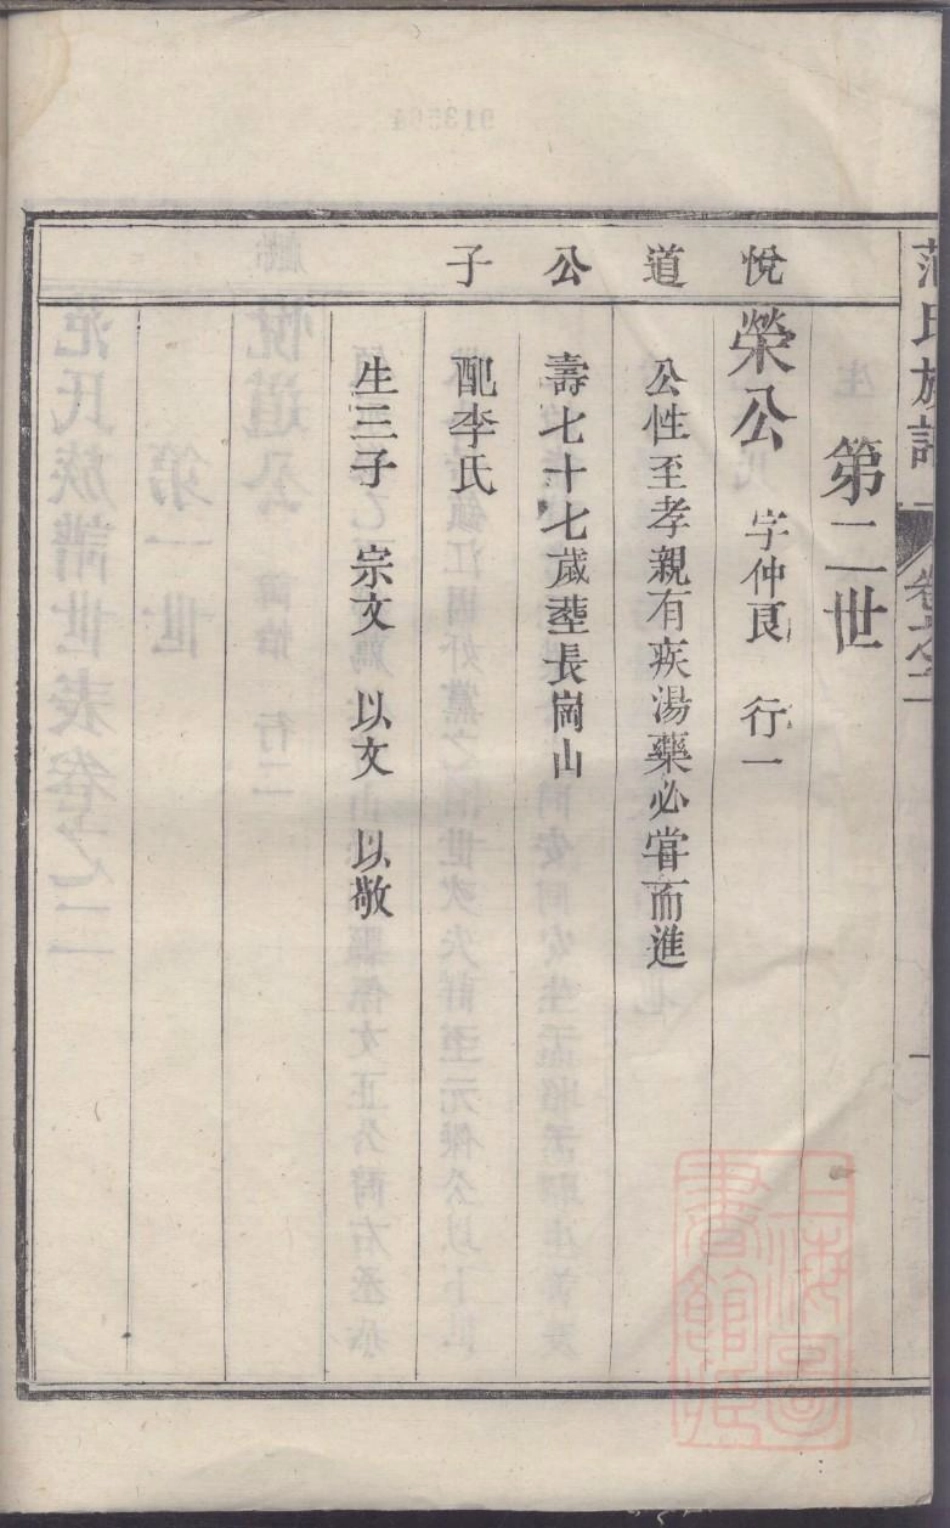 范氏族譜
卷之二
一
第二世
悅道公子
榮公 字仲良 行一
公性至孝親有疾湯藥必嘗而進
壽七十七歲塟長崗山
配李氏
生三子 宗文 以文 以敬
上海圖
書館藏